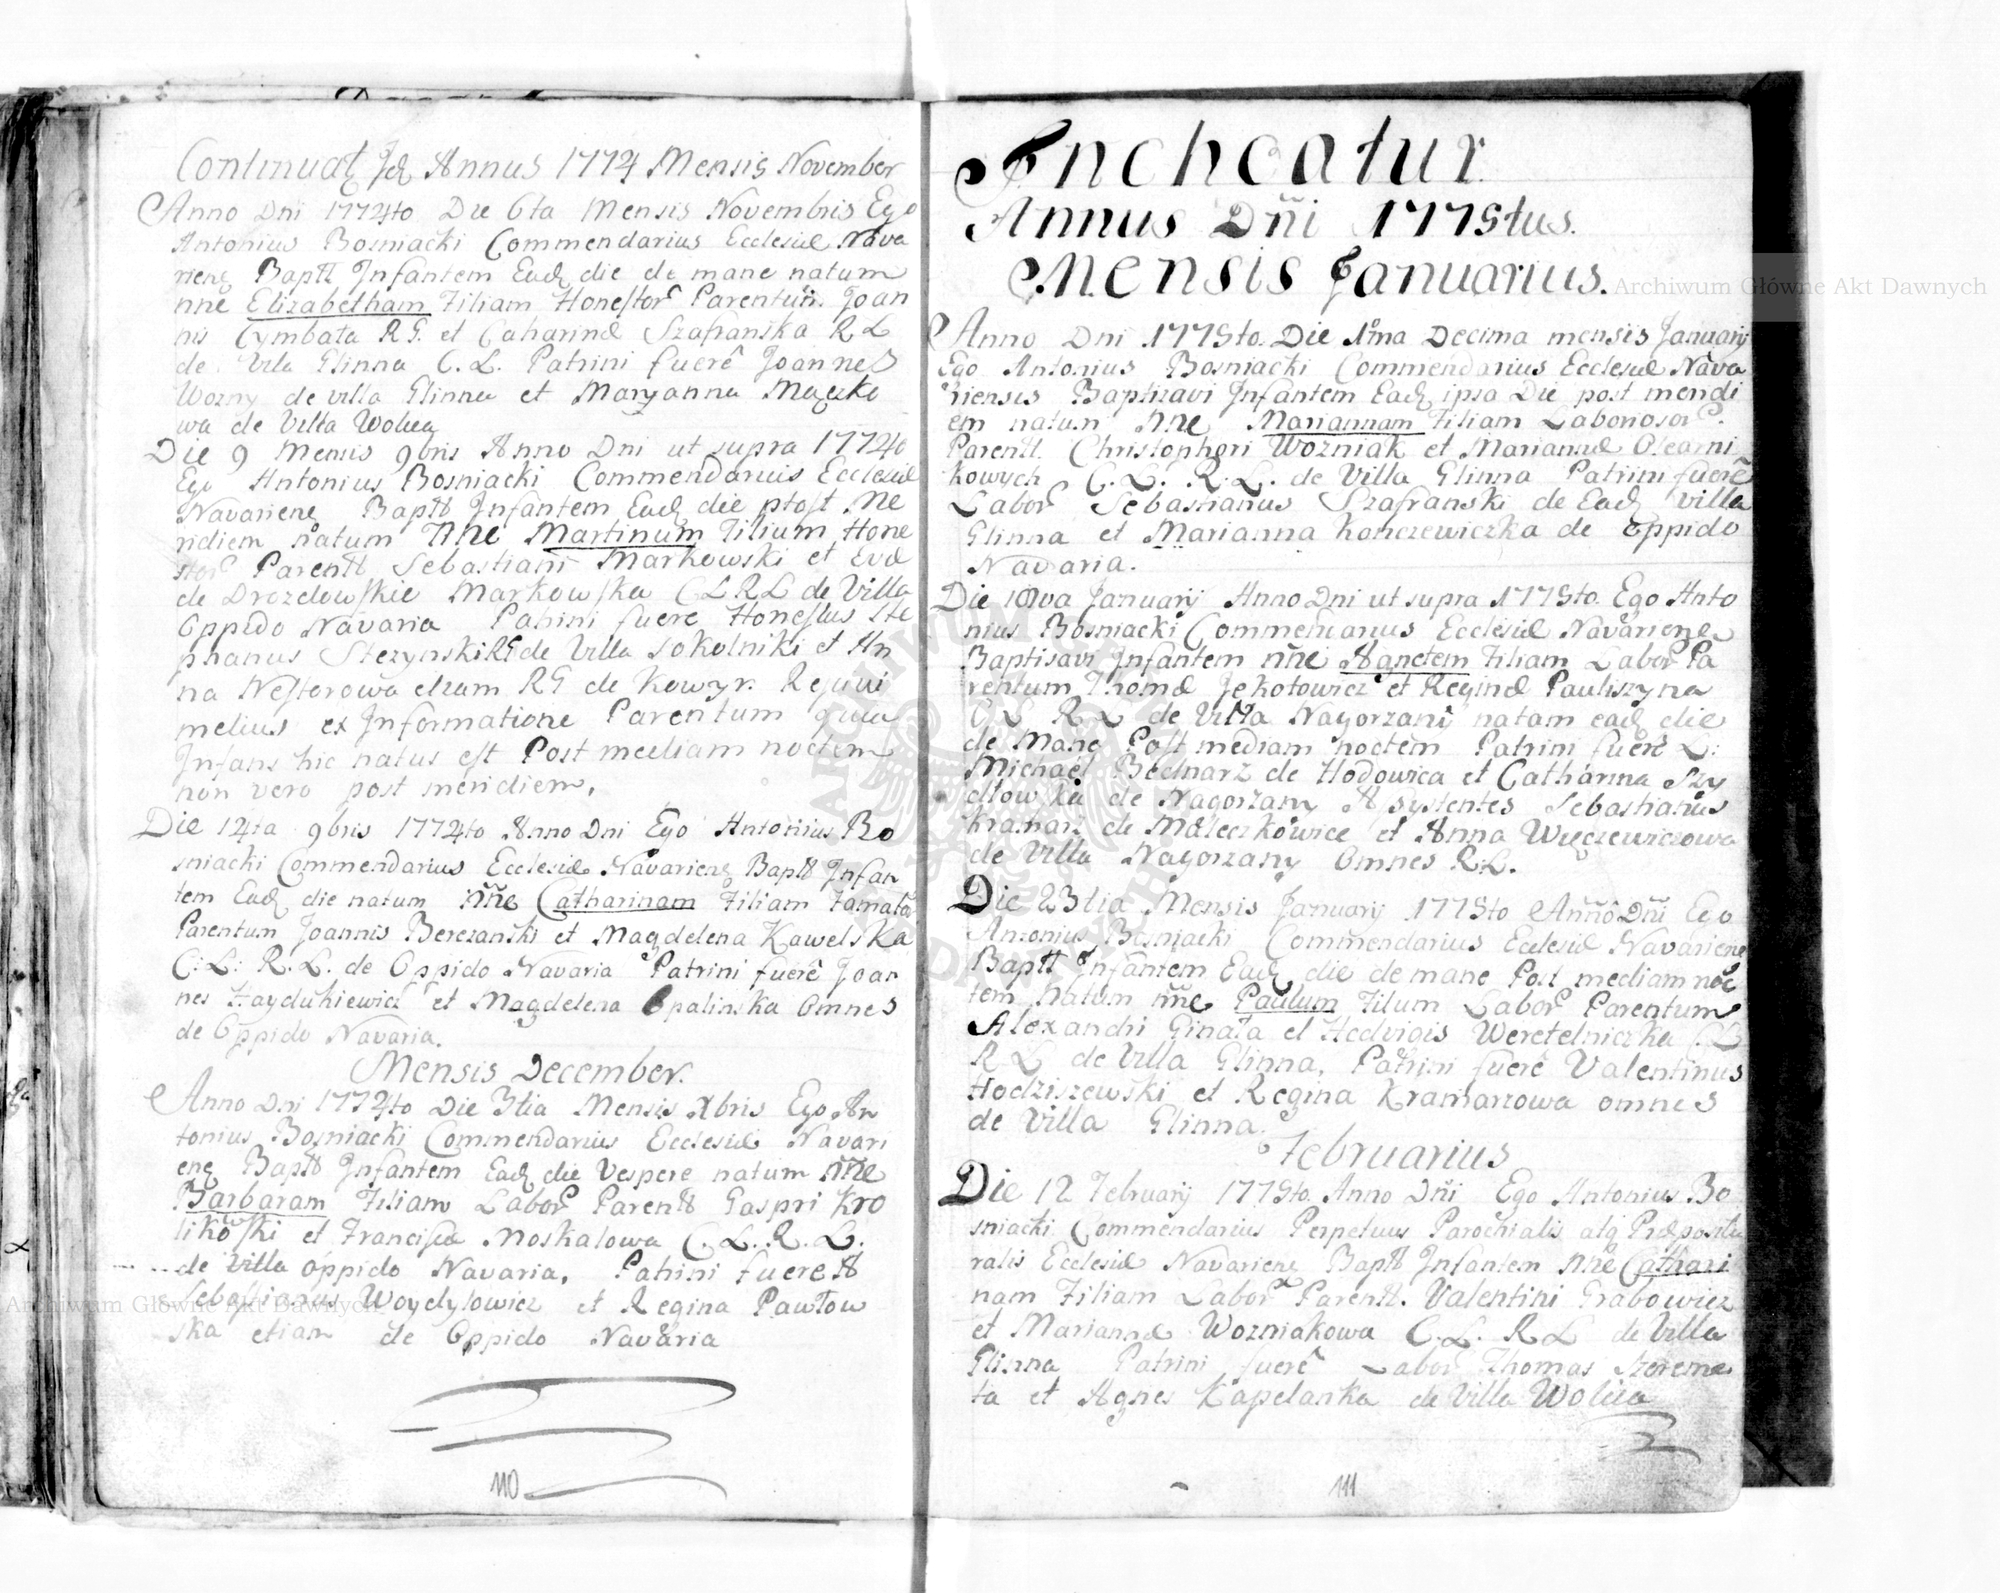 Continuat Id Annus 1774 Mensis November
Anno Dni 1774to Die 6ta Mensis Novembris Ego
Antonius Bosniacki Commendarius Ecclesiæ Nava
rieng Baptt Infantem Ead die de mane natum
nne Elizabetham Filiam Honestor Parentum Joan
nis Cymbała RG. et Catharinæ Szafranska RL
de Villa Glinna C.L. Patrini fuerê Joannes
Wozny de villa Glinna et Maryanna Mączko
wa de Villa Wolica
Die 9 Mensis 9bris Anno Dni ut supra 1774to
Ego Antonius Bosniacki Commendarius Ecclesiæ
Navarieng Baptt Infantem Ead die ptost Me
ridiem natum nne Martinum Filium Hone
stor Parentt Sebastiani Markowski et Evæ
de Drozdowskie Markowska CLRL de Villa
Oppido Navaria Patrini fuere Honestus Ste
phanus Stezynski RG de Villa Sokolniki et An
na Nesterowa etiam RG de Kowyr.
melius ex Informatione Parentum quia
Infans hic natus est Post mediam noctem
non vero post meridiem.
Die 14ta 9bris 1774to Anno Dni Ego Antonius Bo
sniacki Commendarius Ecclesiæ Navarieng Baptt Infan
tem Ead die natum nne Catharinam Filiam Famator
Parentum Joannis Berezanski et Magdelena Kawelska
C:L: R.L. de Oppido Navaria Patrini fuerê Joan
nes Haydukiewicz et Magdelena Opalinska Omnes
de Oppido Navaria.
Mensis December.
Anno Dni 1774to Die 3tia Mensis Xbris Ego An
tonius Bosniacki Commendarius Ecclesiæ Navari
eng Baptt Infantem Ead die Vespere natum nne
Barbaram Filiam Labor Parentt Gaspri Kro
likowski et Francisca Moskalowa C.L.R.L.
de Villa oppido Navaria, Patrini fuere
Sebastianus Woydyłowicz et Regina Pawłow
ska etiam de Oppido Navaria
110
Inchoatur
Annus Dñi 1775tus.
Mensis Januarius.
Anno Dni 1775to. Die 1ma Decima mensis Januarij
Ego Antonius Bosniacki Commendarius Ecclesiæ Nava
riensis Baptisavi Infantem Ead ipsa Die post meridi
em natum nne Mariannam Filiam Laboriosor
Parentt. Christophori Wozniak et Mariannæ Olearni
kowych C.L. R.L. de Villa Glinna Patrini fuerê
Labor Sebastianus Szafranski de Ead villa
Glinna et Marianna Konczewiczka de Oppido
Navaria.
Die 18va Januarij Anno Dni ut supra 1775to. Ego Anto
nius Bosniacki Commendarius Ecclesiæ Navarieng
Baptisavi Infantem nne Agnetem Filiam Labor Pa
rentum Thomæ Jekotowicz et Reginæ Pauliszyna
C L R L de Villa Nagorzani natam ead die
de Mane Post mediam noctem Patrini fuerê L:
Michael Bednarz de Hodowica et Catharina Szy
dłowska de Nagorzany Assystentes Sebastianus
Kramarz de Maleczkowice et Anna Węczewiczowa
de Villa Nagorzany Omnes R.L.
Die 23tia Mensis Januarij 1775to Anno Dñi Ego
Antonius Bosniacki Commendarius Ecclesiæ Navarieng
Baptt Infantem Ead die de mane Post mediam noc
tem natum nne Paulum Filium Labor Parentum
Alexandri Ginała et Hedvigis Weretelniczka C L
R L de Villa Glinna, Patrini fuerê Valentinus
Hodziszewski et Regina Kramarzowa omnes
de Villa Glinna
Februarius
Die 12 Februarij 1775to. Anno Dñi Ego Antonius Bo
sniacki Commendarius Perpetuus Parochialis atq Præpositu
ralis Ecclesiæ Navarieng Baptt Infantem nne Cathari
nam Filiam Labor Parentt. Valentini Grabowicz
et Mariannæ Wozniakowa C.L. R L de Villa
Glinna Patrini fuerê Labor Thomas Szereme
ta et Agnes Kapelanka de Villa Wolica
111
Archiwum Główne Akt Dawnych
Archiwum Główne Akt Dawnych